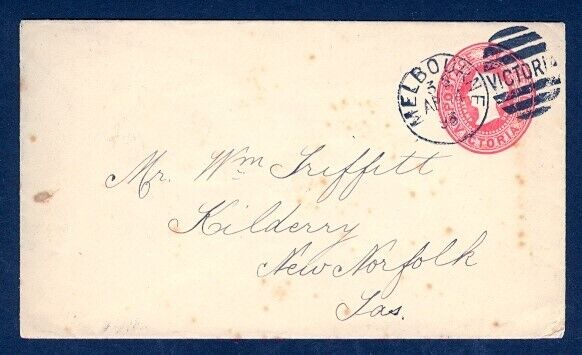 MELBOURNE
3
AP
96
VICTORIA
VICTORIA
Mr. Wm Triffitt
Kilderry
New Norfolk
Tas.